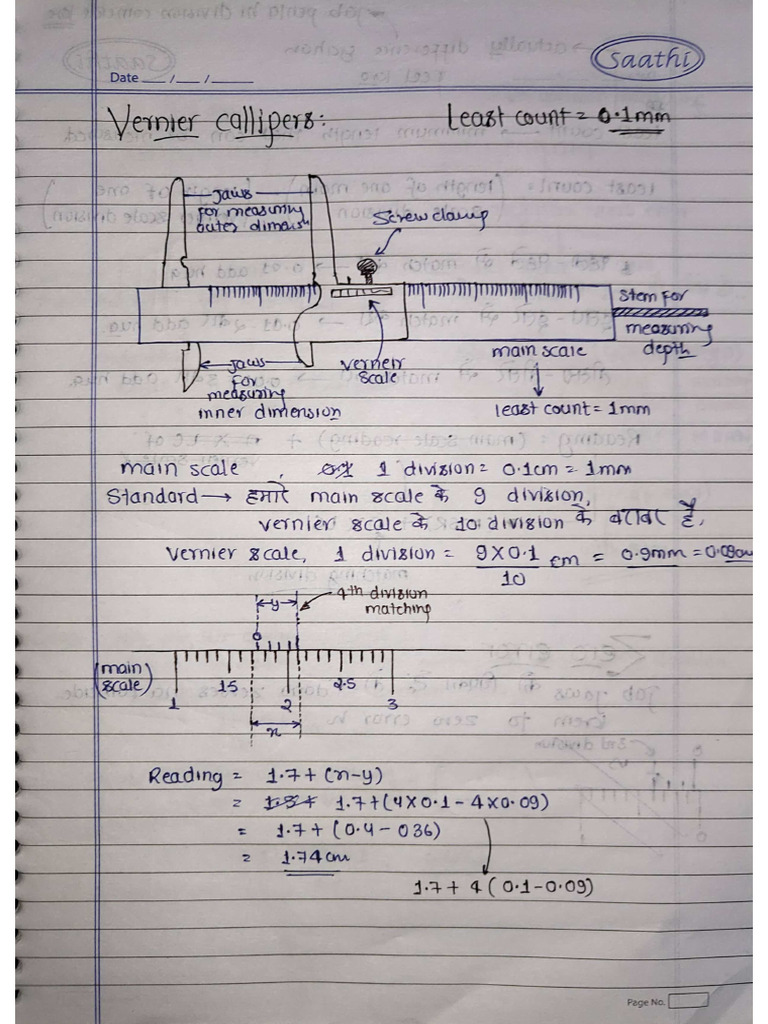 Saathi
Date ___/___/_____
Vernier callipers: Least count = 0.1mm
Jaws
for measuring
outer dimensn
Screw clamp
Stem for
measuring
depth
Jaws
for
measuring
inner dimension
verneir
scale
main scale
least count = 1mm
main scale , 1 division = 0.1cm = 1mm
Standard → हमारे main scale के 9 division,
vernier scale के 10 division के बराबर है,
Vernier scale, 1 division = 9×0.1/10 cm = 0.9mm = 0.09cm
y
4th division
matching
0
(main
scale)
1 1.5 2 2.5 3
x
Reading = 1.7 + (x-y)
= 1.7+(4×0.1-4×0.09)
= 1.7+(0.4-036)
= 1.74cm
1.7+4(0.1-0.09)
Page No.